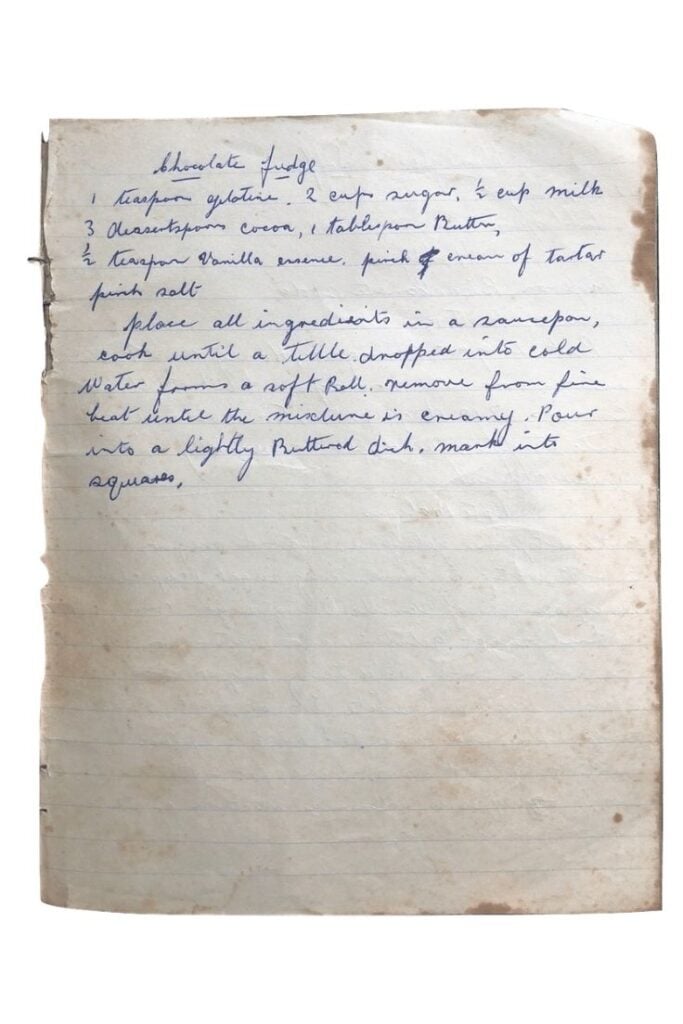 Chocolate fudge
1 teaspoon gelatine. 2 cups sugar, ½ cup milk
3 dessertspoons cocoa, 1 tablespoon Butter,
½ teaspoon Vanilla essence. pinch cream of tartar
pinch salt
place all ingredients in a saucepan,
cook until a little dropped into cold
Water forms a soft Ball. remove from fire
beat until the mixture is creamy. Pour
into a lightly Buttered dish. mark into
squares.